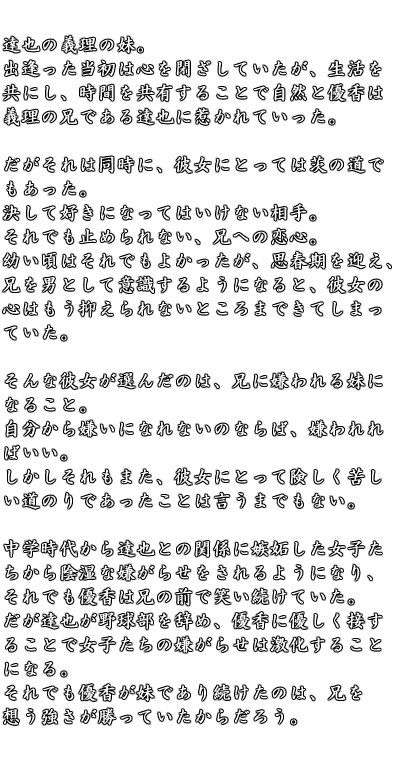 達也の義理の妹。
出逢った当初は心を閉ざしていたが、生活を
共にし、時間を共有することで自然と優香は
義理の兄である達也に惹かれていった。
だがそれは同時に、彼女にとっては茨の道で
もあった。
決して好きになってはいけない相手。
それでも止められない、兄への恋心。
幼い頃はそれでもよかったが、思春期を迎え、
兄を男として意識するようになると、彼女の
心はもう抑えられないところまできてしまっ
ていた。
そんな彼女が選んだのは、兄に嫌われる妹に
なること。
自分から嫌いになれないのならば、嫌われれ
ばいい。
しかしそれもまた、彼女にとって険しく苦し
い道のりであったことは言うまでもない。
中学時代から達也との関係に嫉妬した女子た
ちから陰湿な嫌がらせをされるようになり、
それでも優香は兄の前で笑い続けていた。
だが達也が野球部を辞め、優香に優しく接す
ることで女子たちの嫌がらせは激化すること
になる。
それでも優香が妹であり続けたのは、兄を
想う強さが勝っていたからだろう。